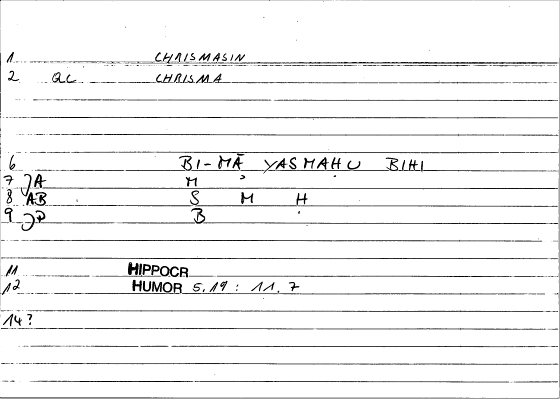 1 CHRISMASIN
2 QC CHRISMA
6 BI-MĀ YASMAḤU BIHI
7 JA M ʾ
8 AB S M H
9 JP B
11 HIPPOCR
12 HUMOR 5,19 : 11, 7
14?